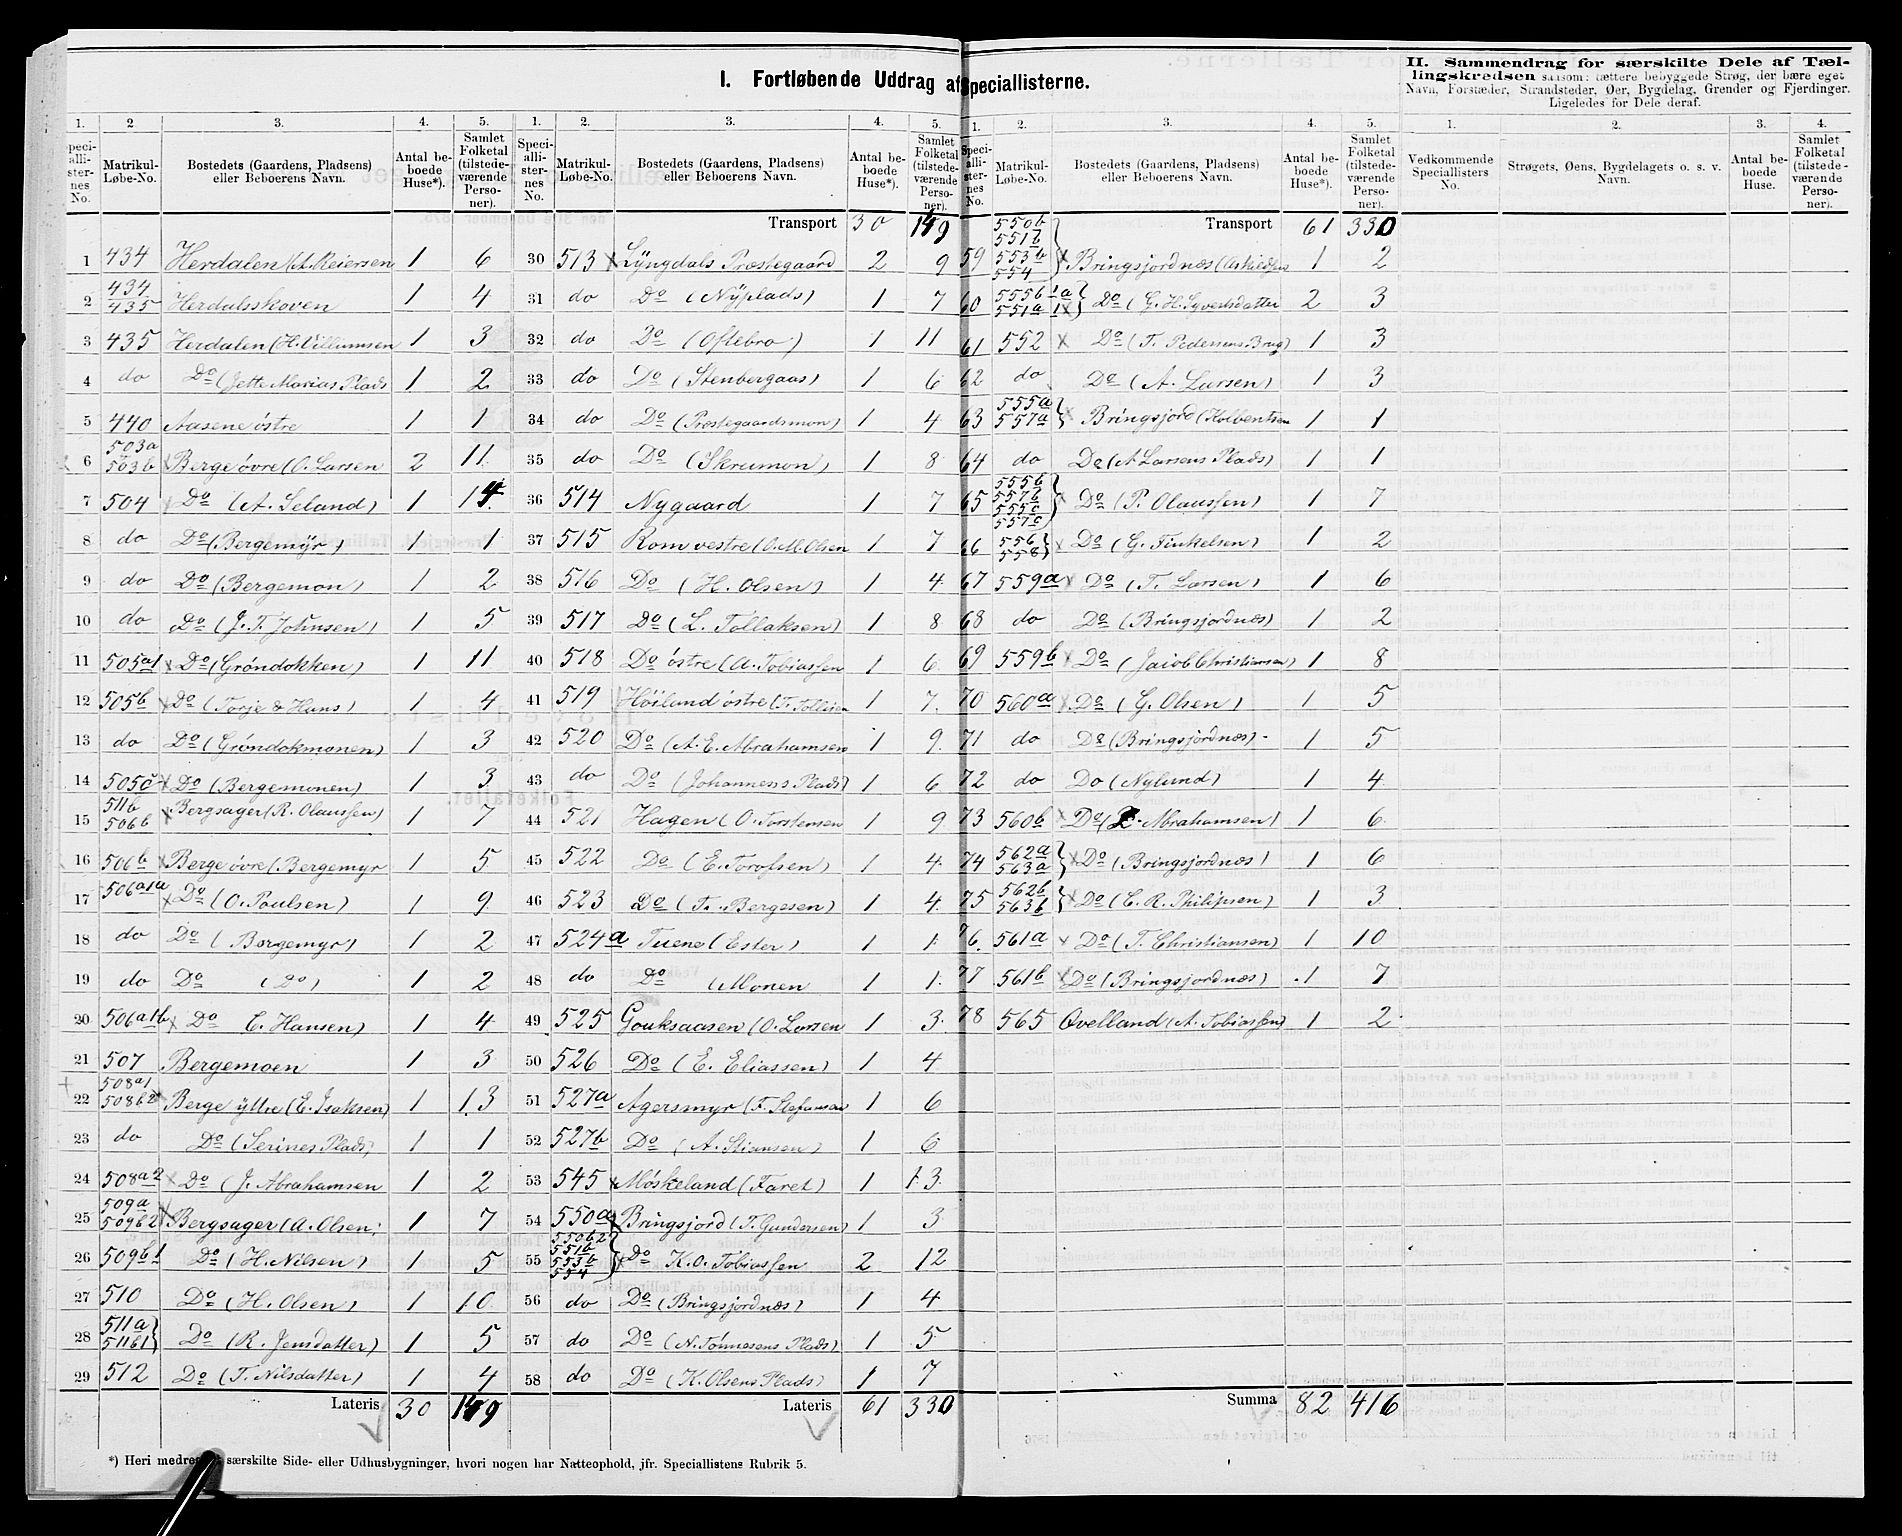 I. Fortløbende Uddrag af Speciallisterne.
II. Sammendrag for særskilte Dele af Tællingskredsen saasom: tættere bebyggede Strøg, der bære eget Navn, Forstæder, Strandsteder, Øer, Bygdelag, Grender og Fjerdinger. Ligeledes for Dele deraf.
1. 2 3. 4. 5. 1. 2. 3. 4. 5. 1. 2. 3. 4. 5. 1. 2. 3. 4.
Speciallisternes No. Matrikul-Løbe-No. Bostedets (Gaardens, Pladsens) eller Beboerens Navn. Antal beboede Huse*). Samlet Folketal (tilstedeværende Personer).
Speciallisternes No. Matrikul-Løbe-No. Bostedets (Gaardens, Pladsens) eller Beboerens Navn. Antal beboede Huse*). Samlet Folketal (tilstedeværende Personer).
Speciallisternes No. Matrikul-Løbe-No. Bostedets (Gaardens, Pladsen) eller Beboerens Navn. Antal beboede Huse*). Samlet Folketal (tilstedeværende Personer).
Vedkommende Speciallisters No. Strøgets, Øens, Bygdelagets o. s. v. Navn. Antal beboede Huse. Samlet Folketal (tilstedeværende Personer).
1 434 Herdalen (A. Reiersen 1 6
2 434 435 Herdalsskoven 1 4
3 435 Herdalen (H. Villumsen 1 3
4 do Do (Jette Marias Plads 1 2
5 440 Aasene østre 1 1
6 503a 503b Berge øvre (O. Larsen 2 11
7 504 Do (A. Seland) 1 14
8 do Do (Bergemÿr) 1 1
9 do Do (Bergemon) 1 2
10 do Do (J. T. Johnsen) 1 5
11 505a1 Do (Gröndokken) 1 11
12 505b Do (Torje & Hans) 1 4
13 do Do (Gröndokmonen) 1 3
14 505c Do (Bergemonen) 1 3
15 511b 506b Bergsager (R. Olaussen) 1 7
16 506b Berge øvre (Bergemyr 1 5
17 506a1a Do (O. Poulsen) 1 9
18 do Do (Bergemyr) 1 2
19 do Do (Do) 1 2
20 506a1b Do E. Hansen) 1 4
21 507 Bergemoen 1 3
22 508a1 508b2 Berge ÿttre (E. Isaksen) 1 13
23 do Do (Serines Plads) 1 1
24 508a2 Do (J. Abrahamsen 1 2
25 509a 509b2 Bergsager (A. Olsen 1 7
26 509b1 Do (H. Nilsen) 1 5
27 510 Do (H. Olsen) 1 10
28 511a 511b1 Do (R. Jensdatter) 1 5
29 512 Do (T. Nilsdatter) 1 4
Lateris 30 149
Transport 30 149
30 513 Lÿngdals Præstegaard 2 9
31 do Do (Nÿplads) 1 7
32 do Do (Oftebro) 1 11
33 do Do (Stenbergaas) 1 6
34 do Do (Præstegaardsmon) 1 4
35 do Do (Skreimon) 1 8
36 514 Nygaard 1 7
37 515 Rom vestre (O. M. Olsen 1 7
38 516 Do (H. Olsen) 1 4
39 517 Do (L. Tollaksen) 1 8
40 518 Do østre (A. Tobiassen 1 6
41 519 Höiland östre (T. 1 7
42 520 Do (A. E. Abrahamsen 1 9
43 do Do (Johannes's Plads) 1 6
44 521 Hagen (O. Torstensen 1 9
45 522 Do (E. Torofsen) 1 4
46 523 Do (T. Bergesen) 1 4
47 524a Tuene (Ester) 1 1
48 do Do (Monen 1 1
49 525 Gouksaasen (O. Larsen 1 3
50 526 Do (E. Eliassen) 1 4
51 527a Agersmyr (F. Stefansen 1 6
52 527b Do (A. Stiansen) 1 6
53 545 Möskeland (Faret) 1 13
54 550a Bringsjord (T. Gundersen) 1 3
55 550b2 551b 553b 554 Do K. O. Tobiassen 2 12
56 do Do (Bringsjordnæs) 1 4
57 do Do (N. Tönnesens Plads) 1 5
58 do Do (K. Olsens Plads) 1 7
Lateris 61 330
Transport 61 330
59 550b 551b 553b 554 Bringsjordnæs (Askildsen 1 2
60 555b1a 551a1 Do (G. H. Syvertsdatter 2 3
61 552 Do (T. Pedersens Brug) 1 3
62 do Do (A. Larsen) 1 3
63 555a 557a Bringsjord (Kolbentsen 1 1
64 do Do (A Larsens Plads) 1 1
65 555b 557b 555c 557c Do (P. Olaussen) 1 7
66 556 558 Do (G. Tinkelsen) 1 2
67 559a Do (T. Larsen) 1 6
68 do Do (Bringsjordnæs) 1 2
69 559b Do (Jacob Christiansen) 1 8
70 560a Do (G. Olsen) 1 5
71 do Do (Bringsjordnæs) 1 5
72 do Do (Nylund) 1 4
73 560b Do ( Abrahamsen) 1 6
74 562a 563a Do (Bringsjordnæs) 1 6
75 562b 563b Do (E. R. Philipsen) 1 3
76 561a Do (T. Christiansen) 1 10
77 561b Do (Bringsjordnæs) 1 7
78 565 Qvelland (A. Tobiassen) 1 2
Summa 82 416
*) Heri medre særskilte Side- eller Udhusbygninger, hvori nogen har Natteophold, jfr. Speciallistens Rubrik 5.